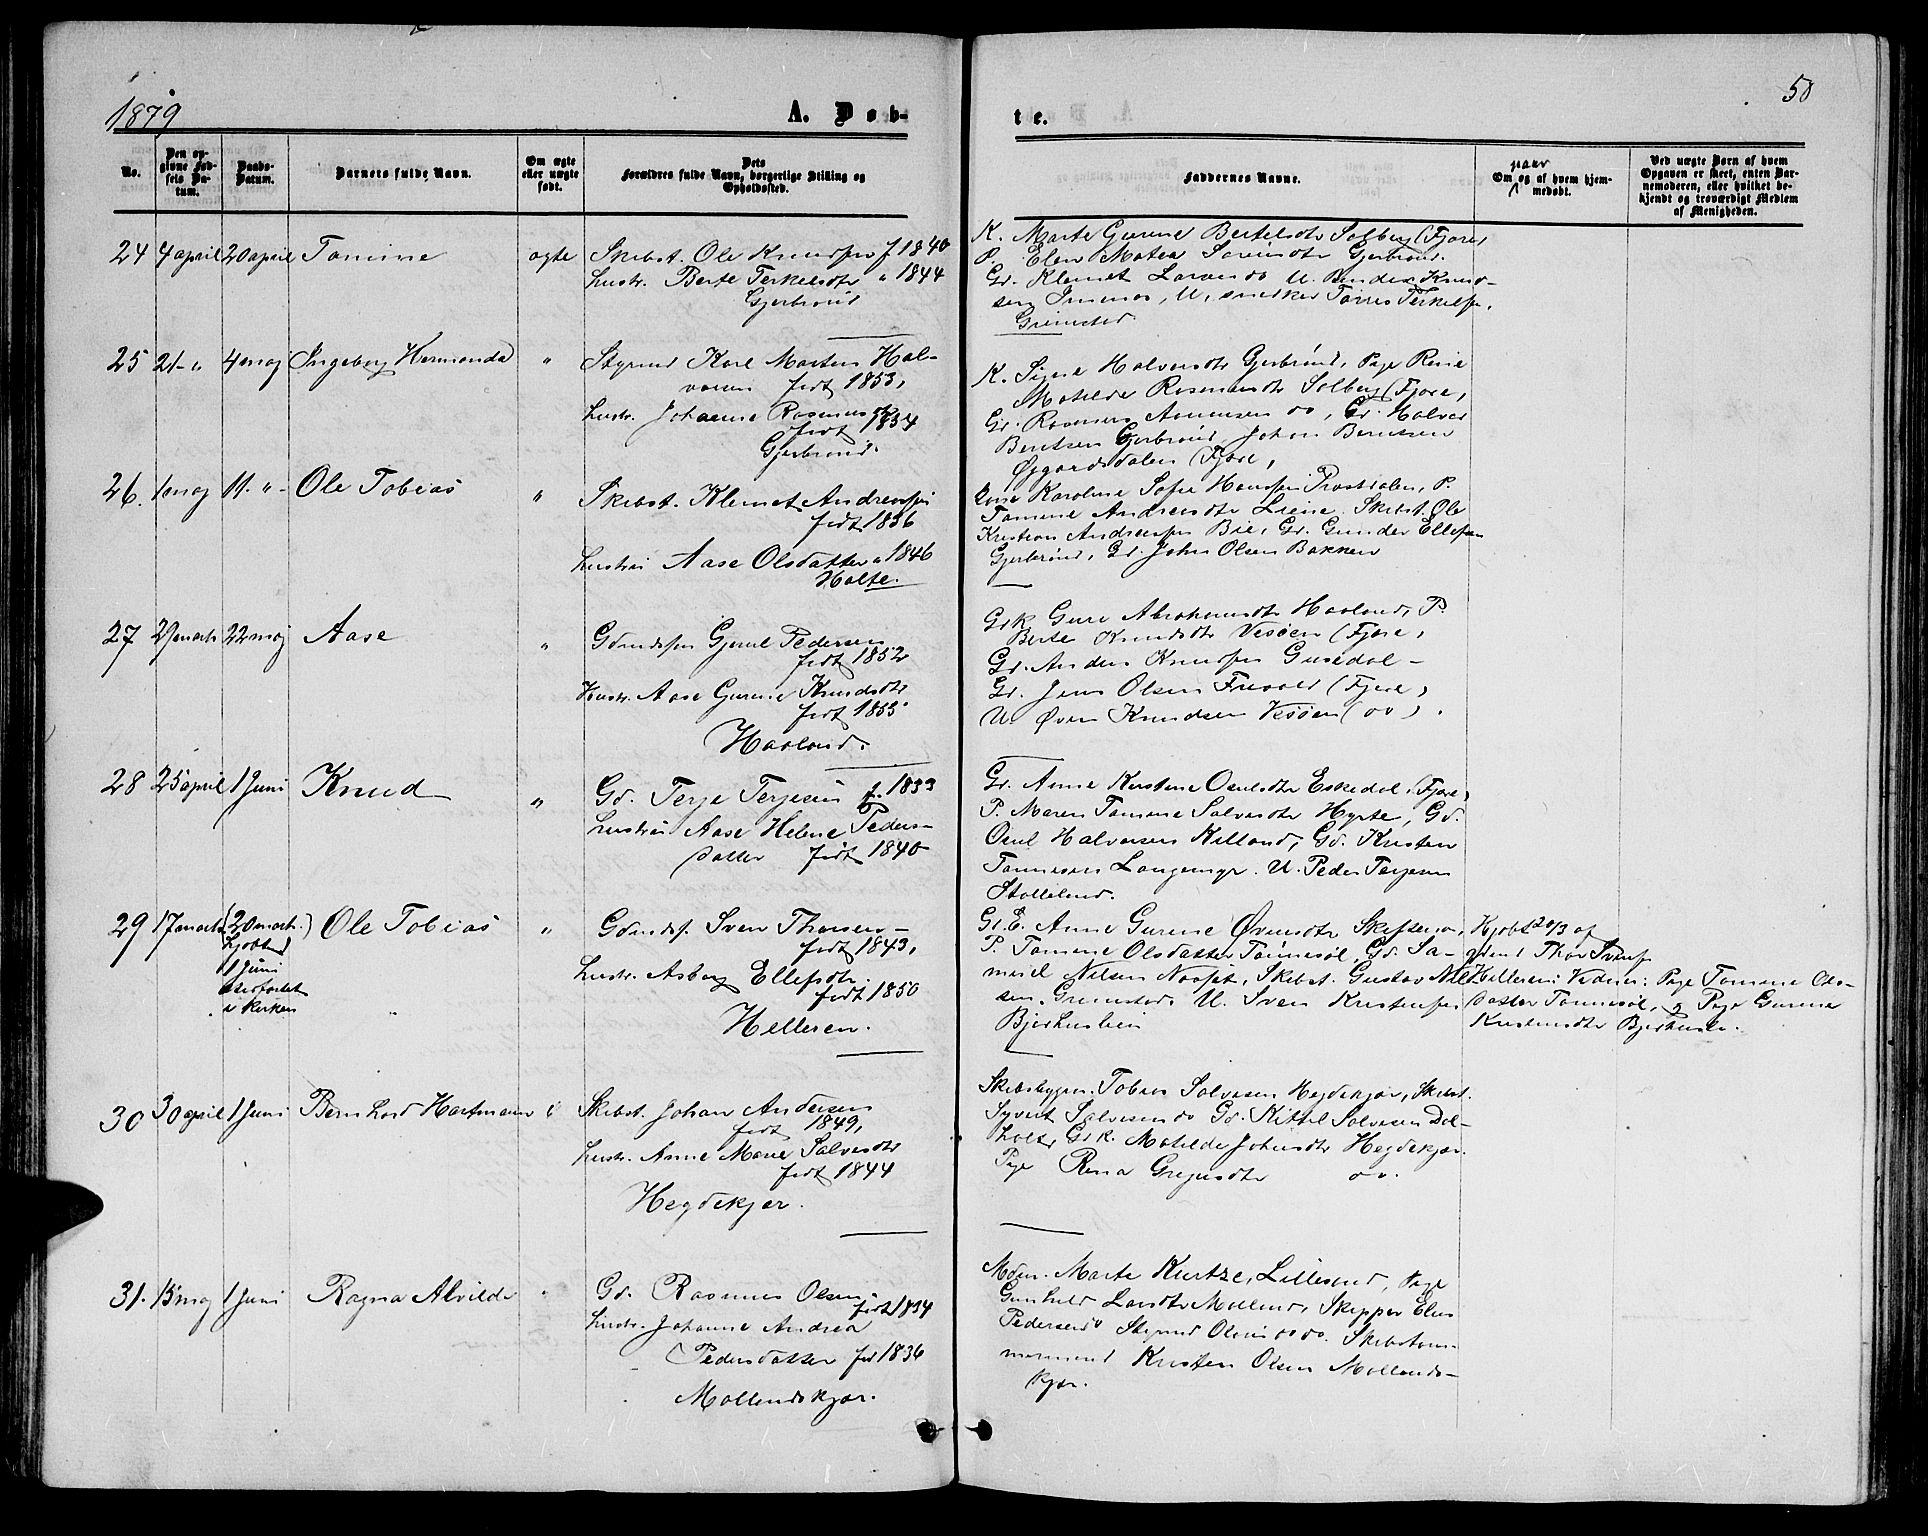 1879
A. Døb-
te.
50
No.
Den op-
givne Fød-
sels Da-
tum.
Daabs-
Datum.
Barnets fulde Navn.
Om ægte
eller uægte
født.
Dets
Forældres fulde Navn, borgerlige Stilling og
Opholdssted.
Faddernes Navne.
naar
Om og af hvem hjem-
medøbt.
Ved uægte Børn af hvem
Opgaven er skeet, enten Bar-
nemoderen, eller hvilket be-
kjendt og troværdigt Medlem
af Menigheden.
24 4 april 20 april Tomine ægte Skibst. Ole Knudsen f 1840
hustr. Berte Terkelsdtr " 1844
Gjerbrønd
K. Marte Gurine Bertelsdtr Solberg (Fjære,
P. Elen Matea Sørensdtr Gjerbrønd.
Gr. Klemet Larsen do U. Knud-
sen U, snedker Tørres Terkelsen,
Grimstad
25 21 " 4 maj Ingeborg Hermanda " Styrmd Karl Morten Hal-
vorsen født 1853,
hustr. Johanne Rasmusdtr
født 1854
Gjerbrønd.
K. Signe Halvorsdtr Gjerbrønd, Pige Rine
Matilde Rasmusdtr Solberg (Fjære,
Gr. Rasmus Asmunsen do, Gr. Halvor
Bentsen Gjerbrønd, Johan Berntsen
Øygardsdalen (Fjære,
26. 1 maj 11. " Ole Tobias " Skibst. Klemet Andreassen
født 1836
hustru Aase Olsdatter " 1846
Holte.
Kone Karoline Sofie Hansen Prestdalen, P.
Tomine Andreasdtr Liene. Skibst. Ole
Kristian Andreassen Bie, Gr. Gunder Ellefsen
Gjerbrønd, Gr. John Olsen Bakken
27 29 marts 22 maj Aase " Gdmdssøn Gjerul Pedersen
født 1852
Hustr. Aase Gurine Knudsdtr
født 1855
Haaland.
Grk Guro Abrahamsdtr Haaland, P.
Berte Knudsdtr Vesøen (Fjære,
Gr. Anders Knudsen Gusedal -
Gr. Jens Olsen Frivold (Fjære,
U. Øven Knudsen Vesøen (do).
28 25 april 1 Juni Knud " Gd. Terje Terjesen f. 1833
hustru Aase Helene Peders-
datter født 1840
Gr. Anne Kirstine Osuldsdtr Eskedal (Fjære,
P. Maren Tomine Salvesdtr Hyrte, Gd.
Osul Halvorsen Killand, Gd. Kristen
Tønnesen Langemyr. U. Peder Terjesen
Stølleland.
29 17 marts (20 marts) Ole Tobias " Gdmdsf. Sven Thorsen -
hjdbt
1 Juni
stadfæstet
i Kirken
født 1843,
hustr. Asborg Ellefsdtr
født 1850
Helleren.
Gr.E. Anne Gurine Øvensdtr Skiftenes,
P. Tomine Olsdatter Tønnesøl, Gd. Sa-
muel Nilsen Skibst. Gustav Nil-
sen, Grimstad, U. Sven Kristensen
Bjorhuslien
Hjdbt 20/3 af
grdmd Thor Svensen
Helleren: Vidner: Pige Tomine Ols-
datter Tønnesøl, og Pige Gurine
Kristensdtr
30 30 april 1 Juni Bernhard Hartmann " Skibst. Johan Andersen
født 1849,
hustr. Anne Marie Salvesdtr
født 1844
Hegdekjær.
Skibsbygm. Tobias Salvesen Hegdekjær, Skibst.
Syvert Salvesen do Gd. Kittel Salvesen Dal-
holt, Grk. Matilde Johansdtr Hegdekjær.
Pige Rina Gregersdtr do.
31. 15 maj 1 Juni Ragna Alvilde " Gd. Rasmus Olsen
født 1834
hustr. Johanne Andrea
Pedersdatter fød 1836
Mollandskjær.
Mdm. Marte Kurtze, Lillesand, Pige
Gunhild Larsdtr Molland, Skipper Elias
Pedersen do Styrmd Olsen do do. Skibstøm-
mermand Kristen Olsen Mollands-
kjær.